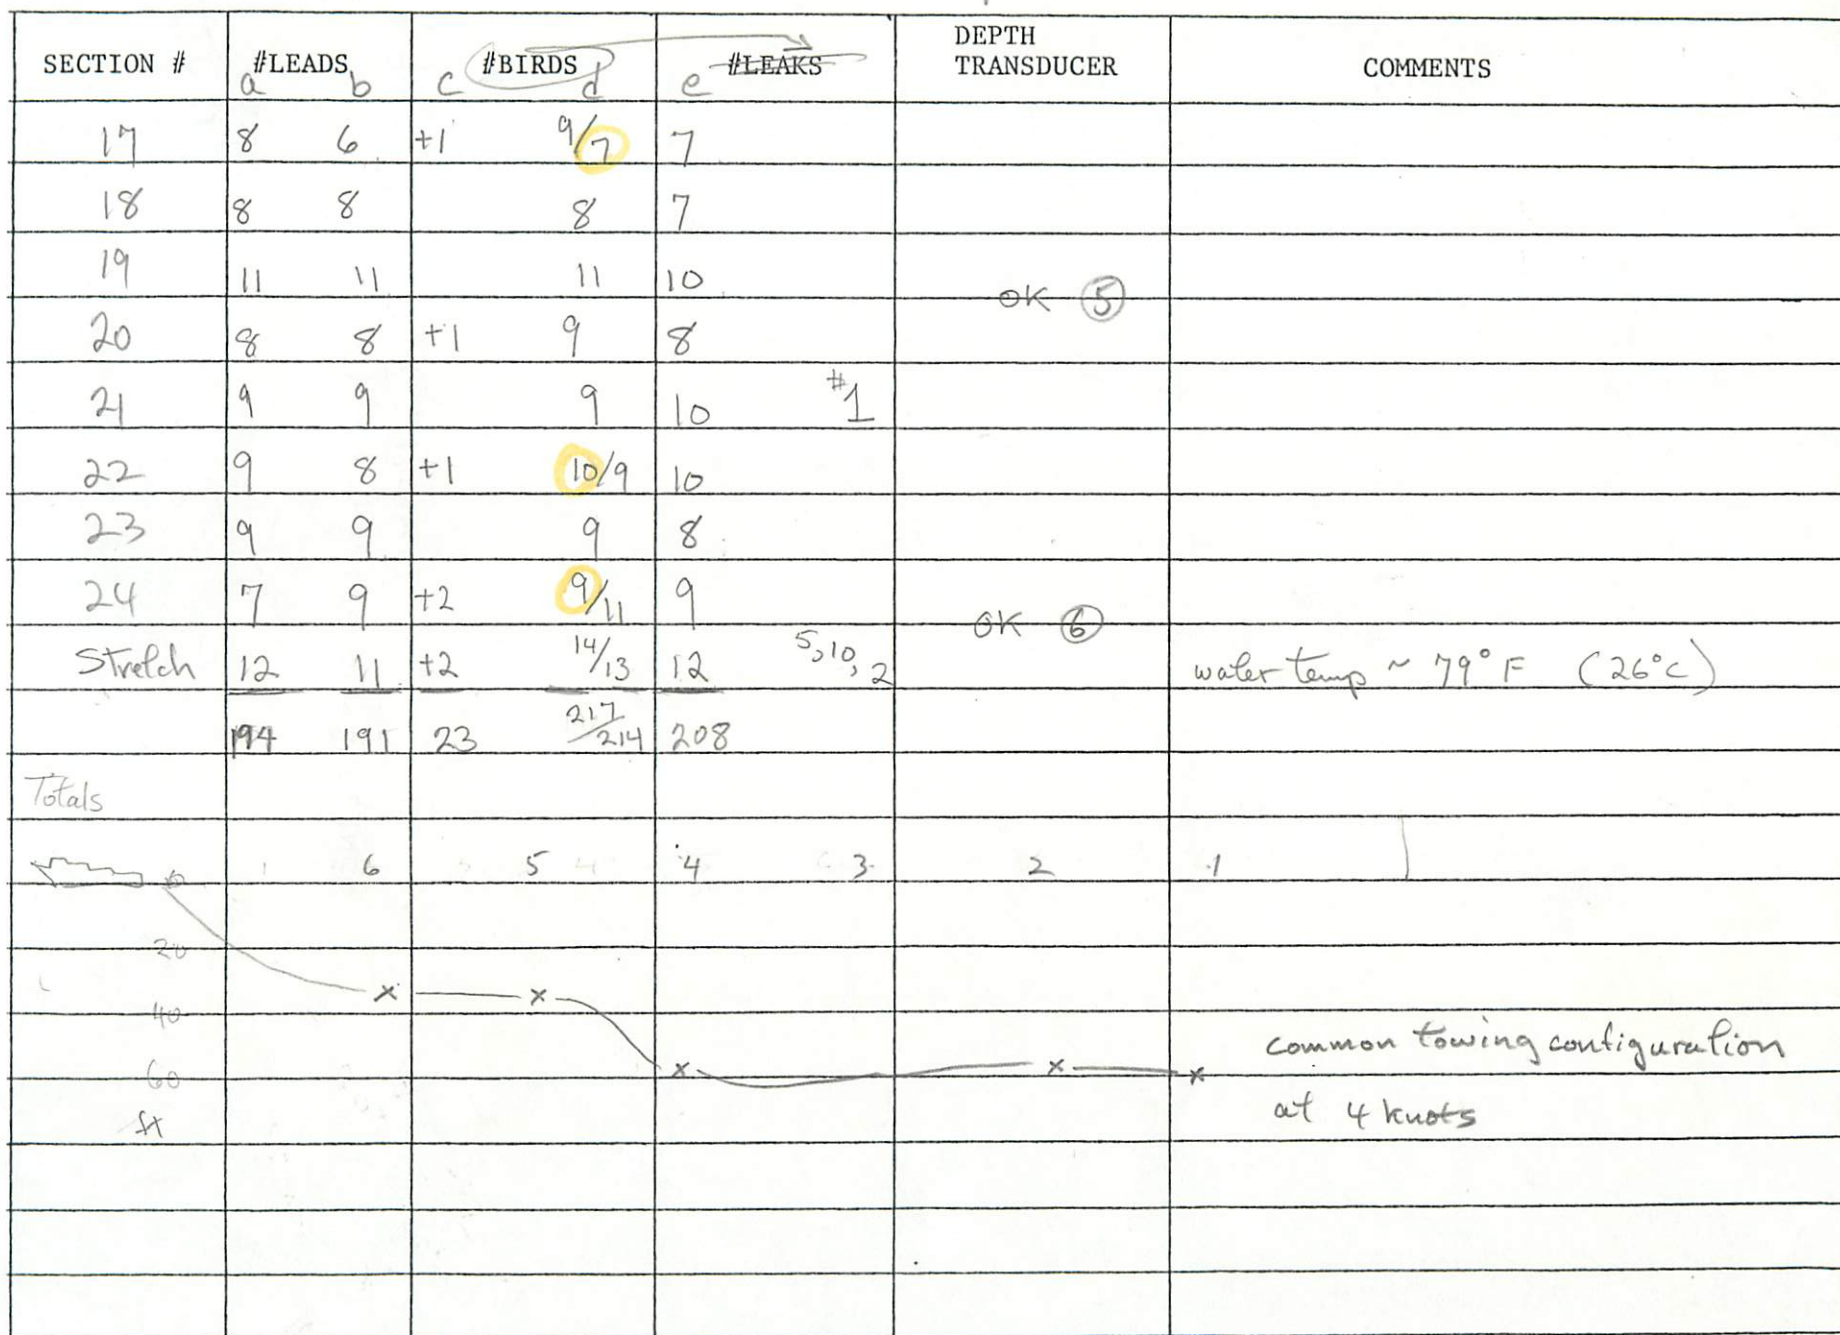 SECTION # #LEADS #BIRDS #LEAKS DEPTH TRANSDUCER COMMENTS
a b c d e
17 8 6 +1 9/7 7
18 8 8 8 7
19 11 11 11 10
OK ⑤
20 8 8 +1 9 8
21 9 9 9 10 #1
22 9 8 +1 10/9 10
23 9 9 9 8
24 7 9 +2 9/11 9
OK ⑥
Stretch 12 11 +2 14/13 12 5,10,2 water temp ~ 79°F (26°C)
194 191 23 217/214 208
Totals
0 6 5 4 3 2 1
20
40
common towing configuration
60
at 4 knots
ft